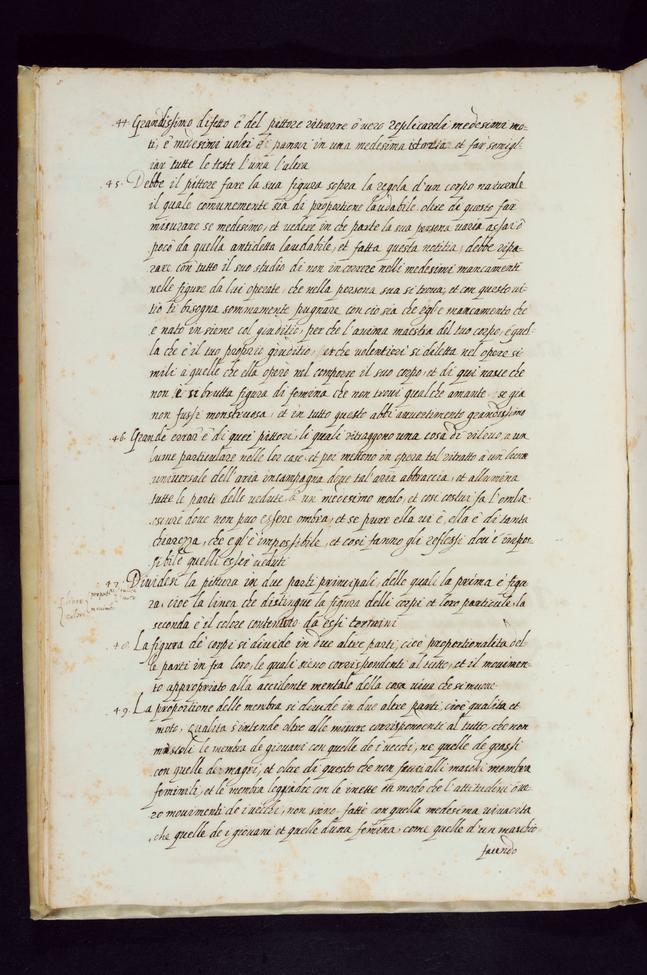 44. Grandissimo difetto è del pittore ritrarre ò uero replicare li medesimi mo-
ti, e medesimi uolti e panni in una medesima istoria et far somigl-
iar tutte le teste l'una l'altra
45. Debbe il pittore fare la sua figura sopra la regola d'un corpo naturale
il quale comunemente sia di proportione laudabile. oltre di questo far
misurare se medesimo, et uedere in che parte la sua persona uaria assai ò
poco da quella antidetta laudabile, et fatta questa notitia, debbe ripa-
rare con tutto il suo studio di non incorrere nelli medesimi mancamenti
nelle figure da lui operate, che nella persona sua si troua; et con questo ui-
tio ti bisogna sommamente pugnare con cio sia che egl'è mancamento che
è nato in sieme col giuditio, per che l'anima maestra del tuo corpo, è quel-
la che è il tuo proprio giuditio, perche volentieri si diletta nel opere si
mili a quelle che ella operò nel comporre il suo corpo, et di qui nasce che
non è si brutta figura di femina che non troui qualche amante, se gia
non fussi monstruosa, et in tutto questo abbi auuertimento grandissimo
46. Grande error è di quei pittori, li quali ritraggono una cosa di rilieuo, a un
lume particulare nelle lor case, et poi mettono in opera tal ritratto a un lume
uniuersale dell'aria in campagna doue tal'aria abbraccia, et allumina
tutte le parti delle uedute à un medesimo modo, et cosi costui fa l'ombre
oscure doue non puo essere ombra, et se pure ella ui è, ella è di tanta
chiarezza, che egl'è impossibile, et cosi fanno gli reflessi dou'è impos-
sibile quelli esser ueduti
47. Diuidesi la pittura in due parti principali, delle quali la prima è figu
ra, cioe la linea che distingue la figura delli corpi et loro particule, la
seconda è il colore contenuto da essi termini
48. La figura de corpi si diuide in due altre parti, cioè proportionalita del-
le parti in fra loro, le quali sieno corrispondenti al tutto, et il mouimen-
to appropriato alla accidente mentale della cosa uiua che si muoue
49. La proportione delle membra si diuide in due altre parti, cioè qualita et
moto. qualita s'intende oltre alle misure corrispondenti al tutto, che non
mescoli le membra de giouani con quelle de i uecchi, ne quelle de grassi
con quelle de magri, et oltre di questo che non facci alli maschi membra
feminili, et le membra leggiadre con le inette
mouimenti de i uecchi, non sieno fatti con quella medesima uiuacita
che quelle de i giouani et quelle d'una femina, come quelle d'un maschio
facendo